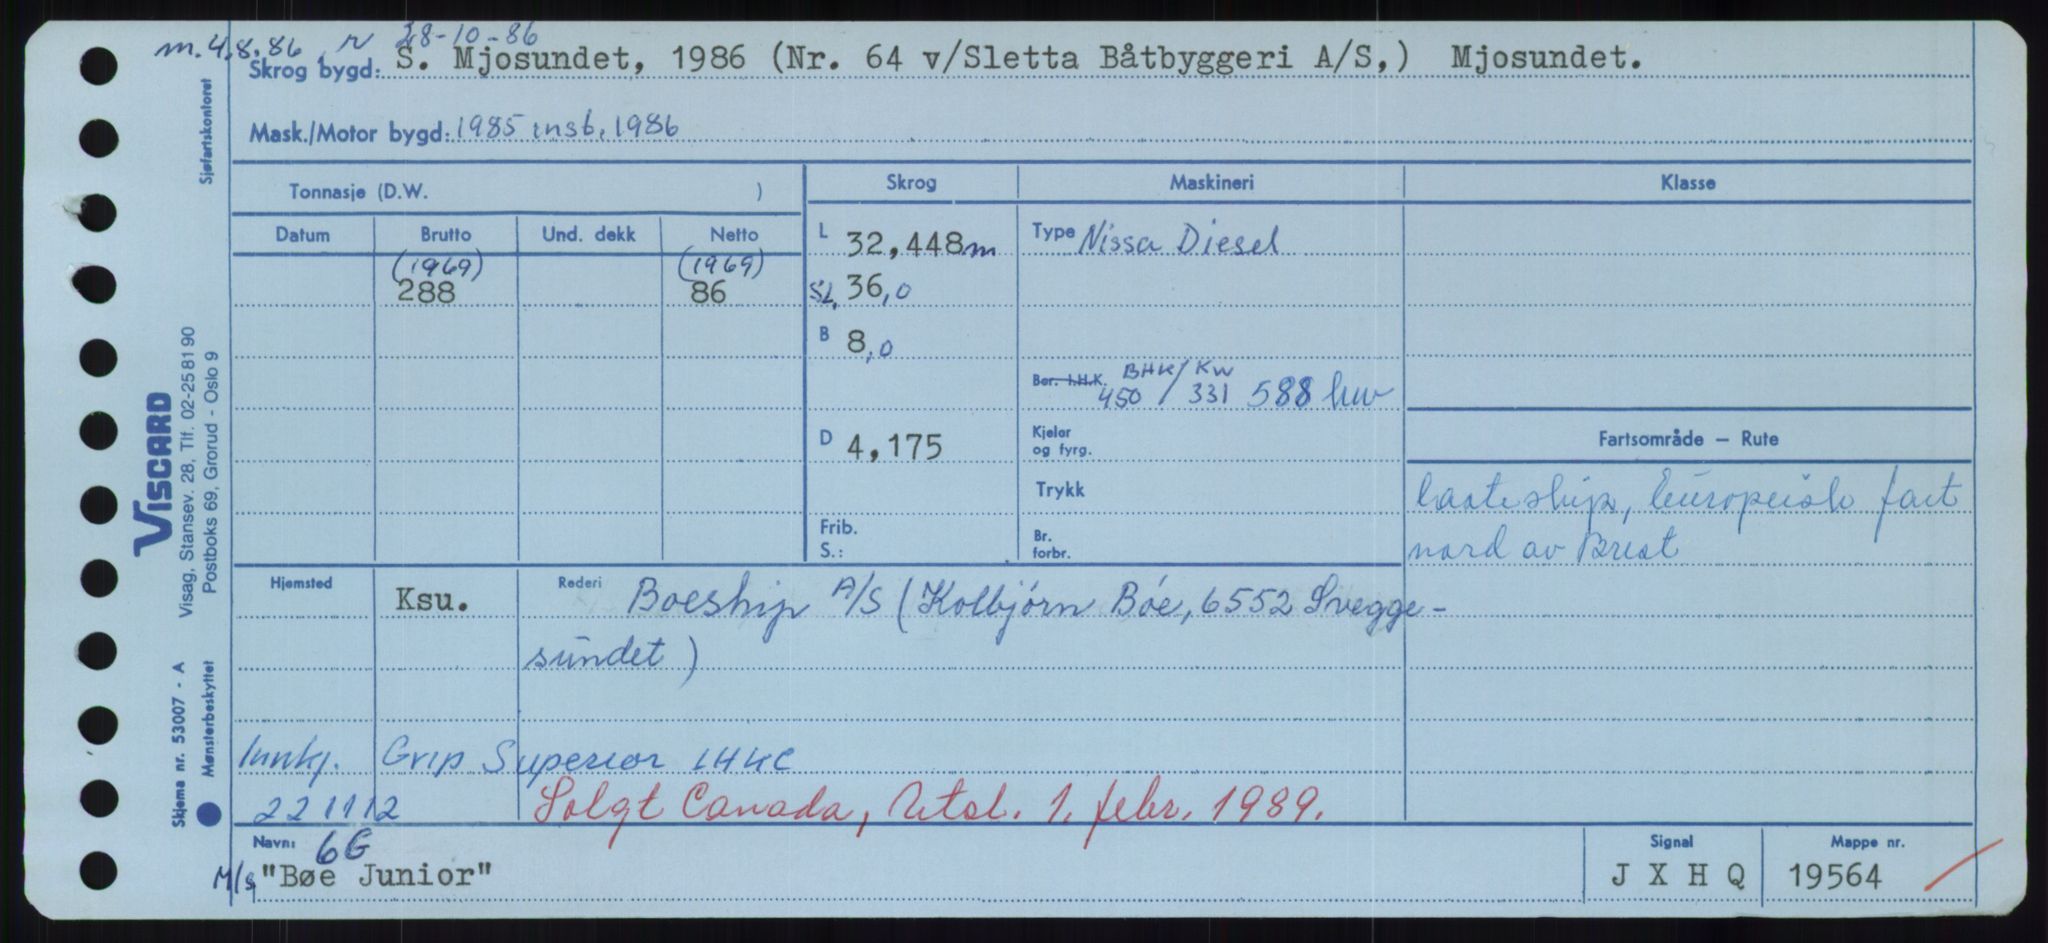 m. 4.8.86 r 28-10-86
Skrog bygd: S. Mjosundet, 1986 (Nr. 64 v/Sletta Båtbyggeri A/S,) Mjosundet.
Mask./Motor bygd: 1985 inst. 1986
Tonnasje (D.W. )
Skrog
Maskineri
Klasse
Datum
Brutto
Und. dekk
Netto
(1969)
(1969)
288
86
L 32,448m
SL. 36,0
B 8,0
D 4,175
Frib.
S.:
Type Nissa Diesel
Ber. I.H.K. BHK/KW
450 / 331 588 kw
Kjeler
og fyrg.
Trykk
Br.
forbr.
Fartsområde – Rute
lasteskip, Europeisk fart
nord av Brest
Hjemsted
Ksu.
Rederi
Boeship A/S (Kolbjørn Bóe, 6552 Svegge-
sundet)
Innkj. Grip Superior LHKC
221112
Solgt Canada, Utsl. 1. febr. 1989.
Navn: 6G
M/s "Bøe Junior"
Signal
J X H Q
Mappe nr.
19564
Sjøfartskontoret
VISCARD
Visag, Stansev. 28, Tlf. 02-25 81 90
Postboks 69, Grorud - Oslo 9
Skjema nr. 53007 - A
Mønsterbeskyttet